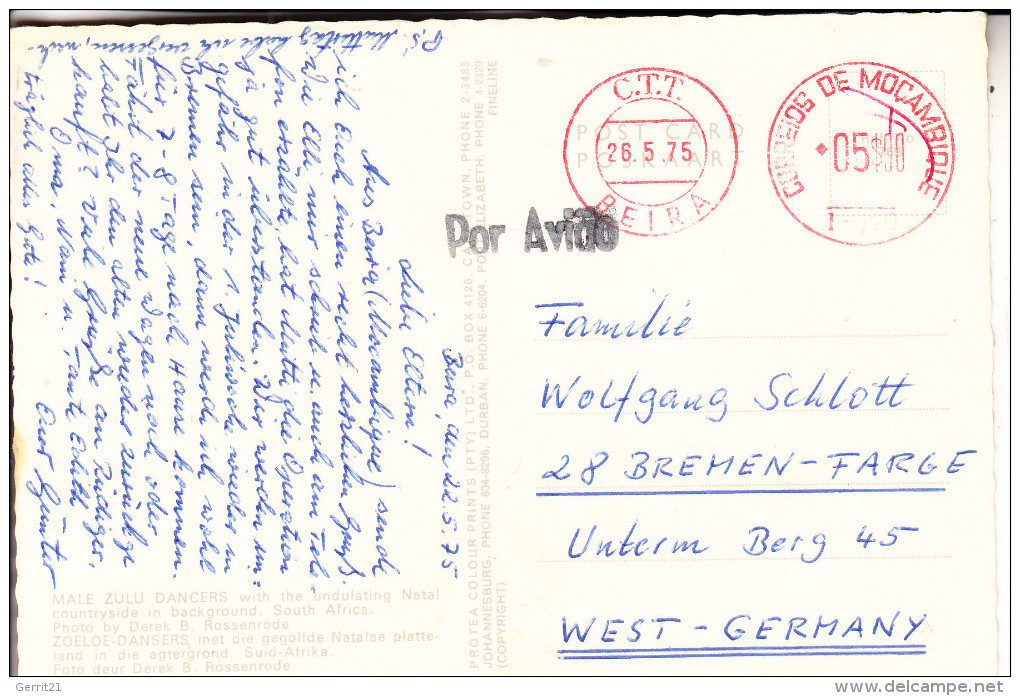 Beira, den 22.5.75
Liebe Eltern!
Aus Beira (Mocambique) sende
ich Euch einen recht herzlichen Gruß.
Wie Elli mir schrieb u. auch am Tele-
fon erzählt, hat Mutti die Operation
ja gut überstanden. Wir werden un-
gefähr in der 1. Juliwoche wieder in
Bremen sein, dann werde ich wohl
für 7-8 Tage nach Hause kommen.
Fährt der neue Wagen noch oder
habt Ihr den alten wieder zurückge
kauft? Viele Grüße an Rüdiger,
Oma, Mam u. Tante Edith
Euer Günter
P.S. Muttertag habe ich vergessen, nach-
träglich alles Gute!
MALE ZULU DANCERS with the undulating Natal
countryside in background. South Africa.
Photo by Derek B. Rossenrode
ZOELOE-DANSERS met die gegolfde Natalse platte-
land in die agtergrond. Suid-Afrika.
Foto deur Derek B. Rossenrode
PROTEA COLOUR PRINTS (PTY) LTD., P.O. BOX 4126, CAPE TOWN, PHONE 2-3485
JOHANNESBURG, PHONE 834-8296, DURBAN, PHONE 6-6204, PORT ELIZABETH, PHONE 4-2320
(COPYRIGHT) FINELINE
POST CARD
POSKAART
C.T.T.
26.5.75
BEIRA
CORREIOS DE MOÇAMBIQUE
05$00
Por Avião
Familie
Wolfgang Schlott
28 BREMEN-FARGE
Unterm Berg 45
WEST-GERMANY
Gerrit21
delcampe.net